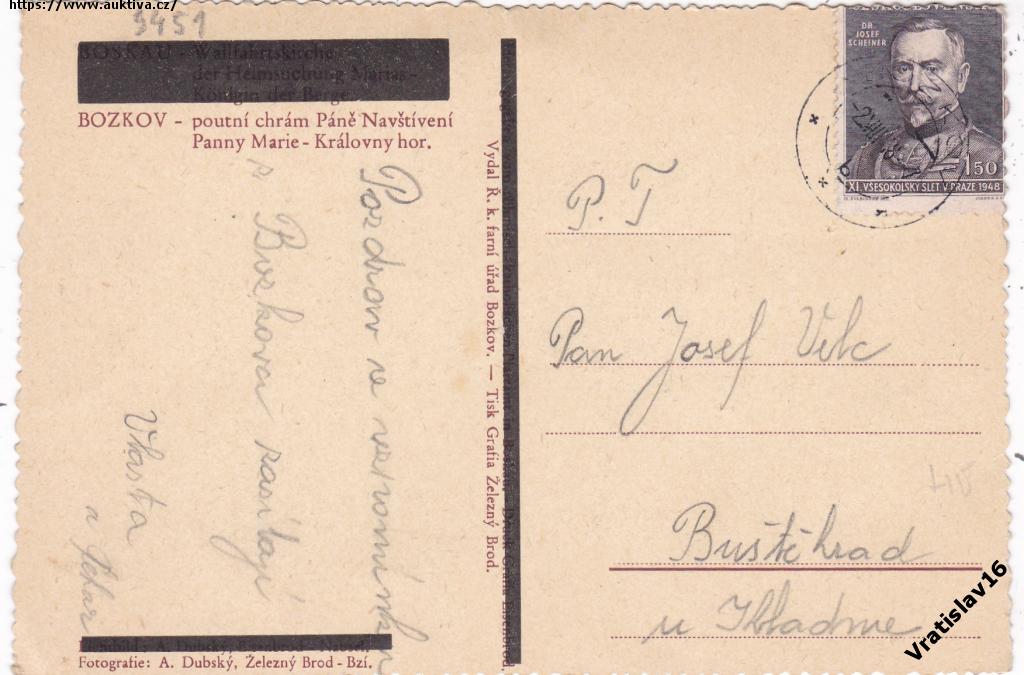 https://www.auktiva.cz/
9451
BOSKAU - Wallfahrtskirche
der Heimsuchung Marias -
Königin der Berge
BOZKOV - poutní chrám Páně Navštívení
Panny Marie - Královny hor.
Pozdrav se vzpomínkou
s Bozkova zasílají
Vlasta
a
Vydal Ř. k. farní úřad Bozkov. — Tisk Grafia Železný Brod.
Fotografie: A. Dubský, Železný Brod - Bzí.
DR
JOSEF
SCHEINER
1.50
XI. VŠESOKOLSKÝ SLET V PRAZE 1948
P. T
Pan Josef Vlk
Buštěhrad
u Kladna
Vratislav16